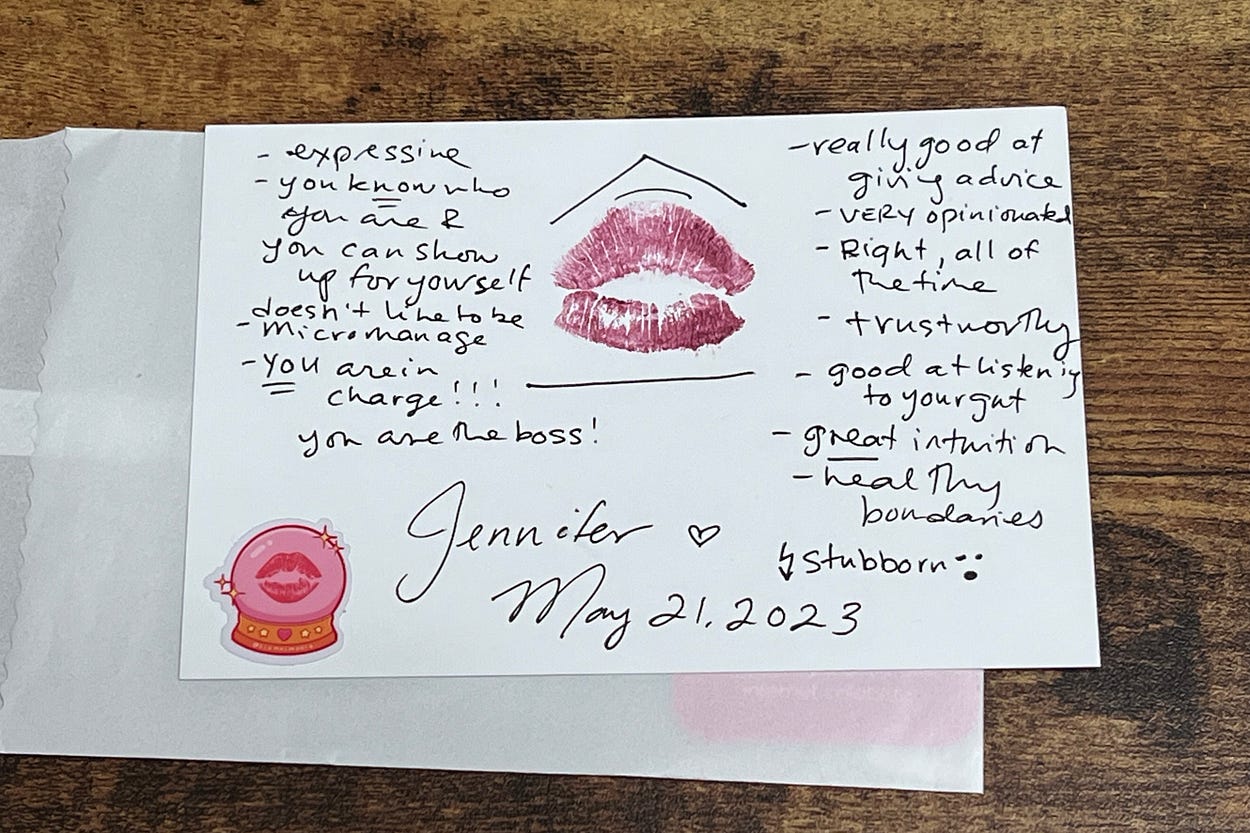 - expressive
- you know who
you are &
you can show
up for yourself
doesn't like to be
- micromanage
- you are in
charge!!!
you are the boss!
- really good at
giving advice
- VERY opinionated
- Right, all of
the time
- trustworthy
- good at listening
to your gut
- great intuition
- healthy
boundaries
↯ stubborn
Jennifer ♡
May 21, 2023